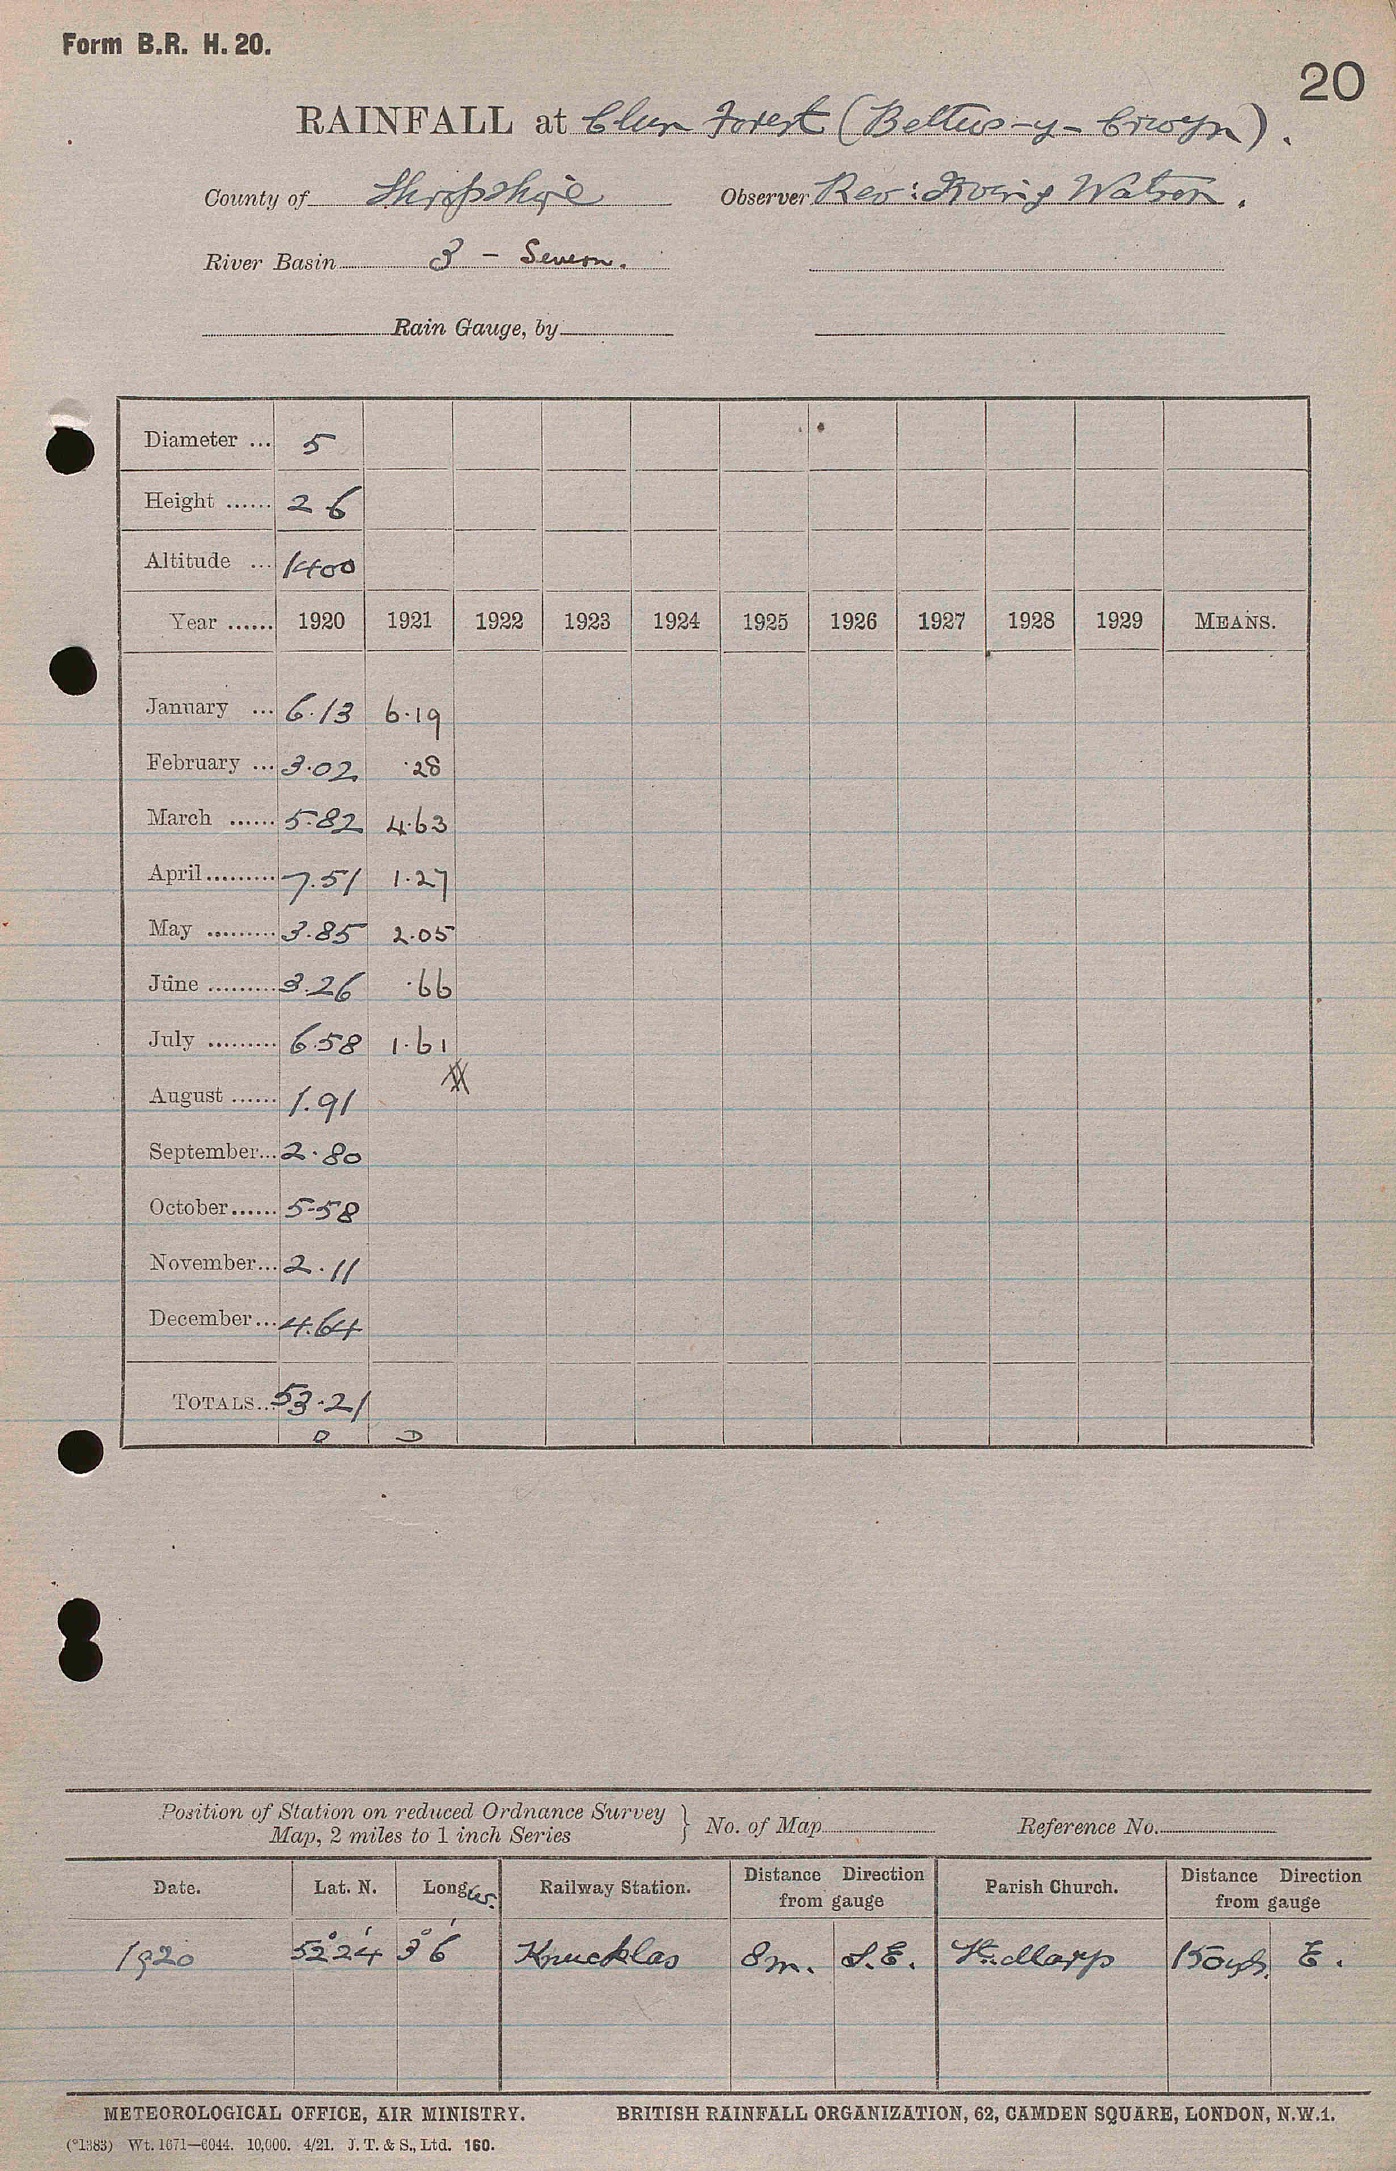 Form B.R. H. 20.
20
RAINFALL at Clun Forest (Bettws-y-Crwyn).
County of Shropshire Observer Rev: Irving Watson.
River Basin 3 - Severn.
Rain Gauge, by
Diameter ... 5
Height ...... 2 6
Altitude ... 1400
Year ...... 1920 1921 1922 1923 1924 1925 1926 1927 1928 1929 MEANS.
January ... 6.13 6.19
February ... 3.02 .28
March ...... 5.82 4.63
April ......... 7.51 1.27
May ......... 3.85 2.05
June ......... 3.26 .66
July ......... 6.58 1.61
August ...... 1.91
September... 2.80
October...... 5.58
November... 2.11
December... 4.64
TOTALS... 53.21
D D
Position of Station on reduced Ordnance Survey Map, 2 miles to 1 inch Series } No. of Map Reference No.
Date. Lat. N. Long W. Railway Station. Distance Direction from gauge Parish Church. Distance Direction from gauge
1920 52° 24' 3° 6' Knucklas 8m. S.E. 150 yds. E.
METEOROLOGICAL OFFICE, AIR MINISTRY. BRITISH RAINFALL ORGANIZATION, 62, CAMDEN SQUARE, LONDON, N.W.1.
(*1383) Wt. 1671—6044. 10,000. 4/21. J. T. & S., Ltd. 160.